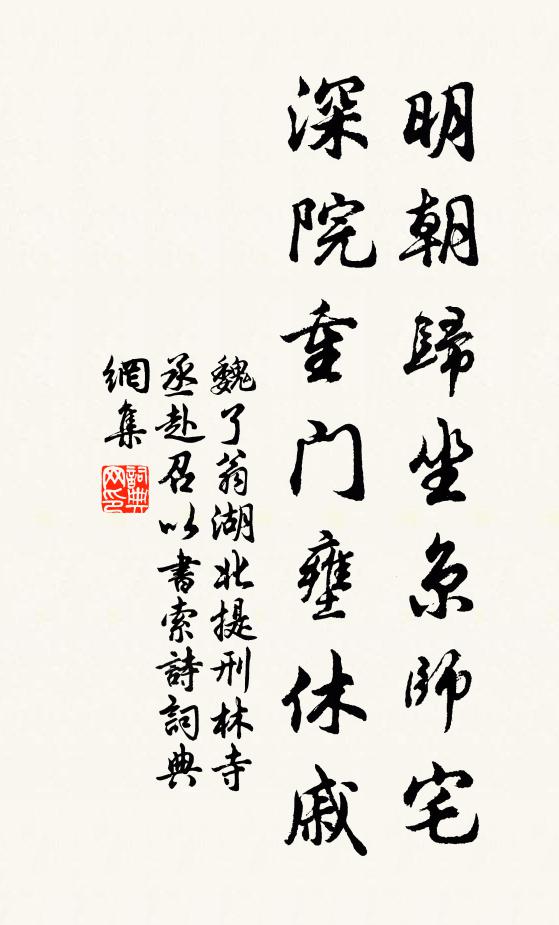 明朝歸坐京師宅
深院重門壅休戚
魏了翁湖北提刑林寺
丞赴召以書索詩詞典
網集
詞典網印